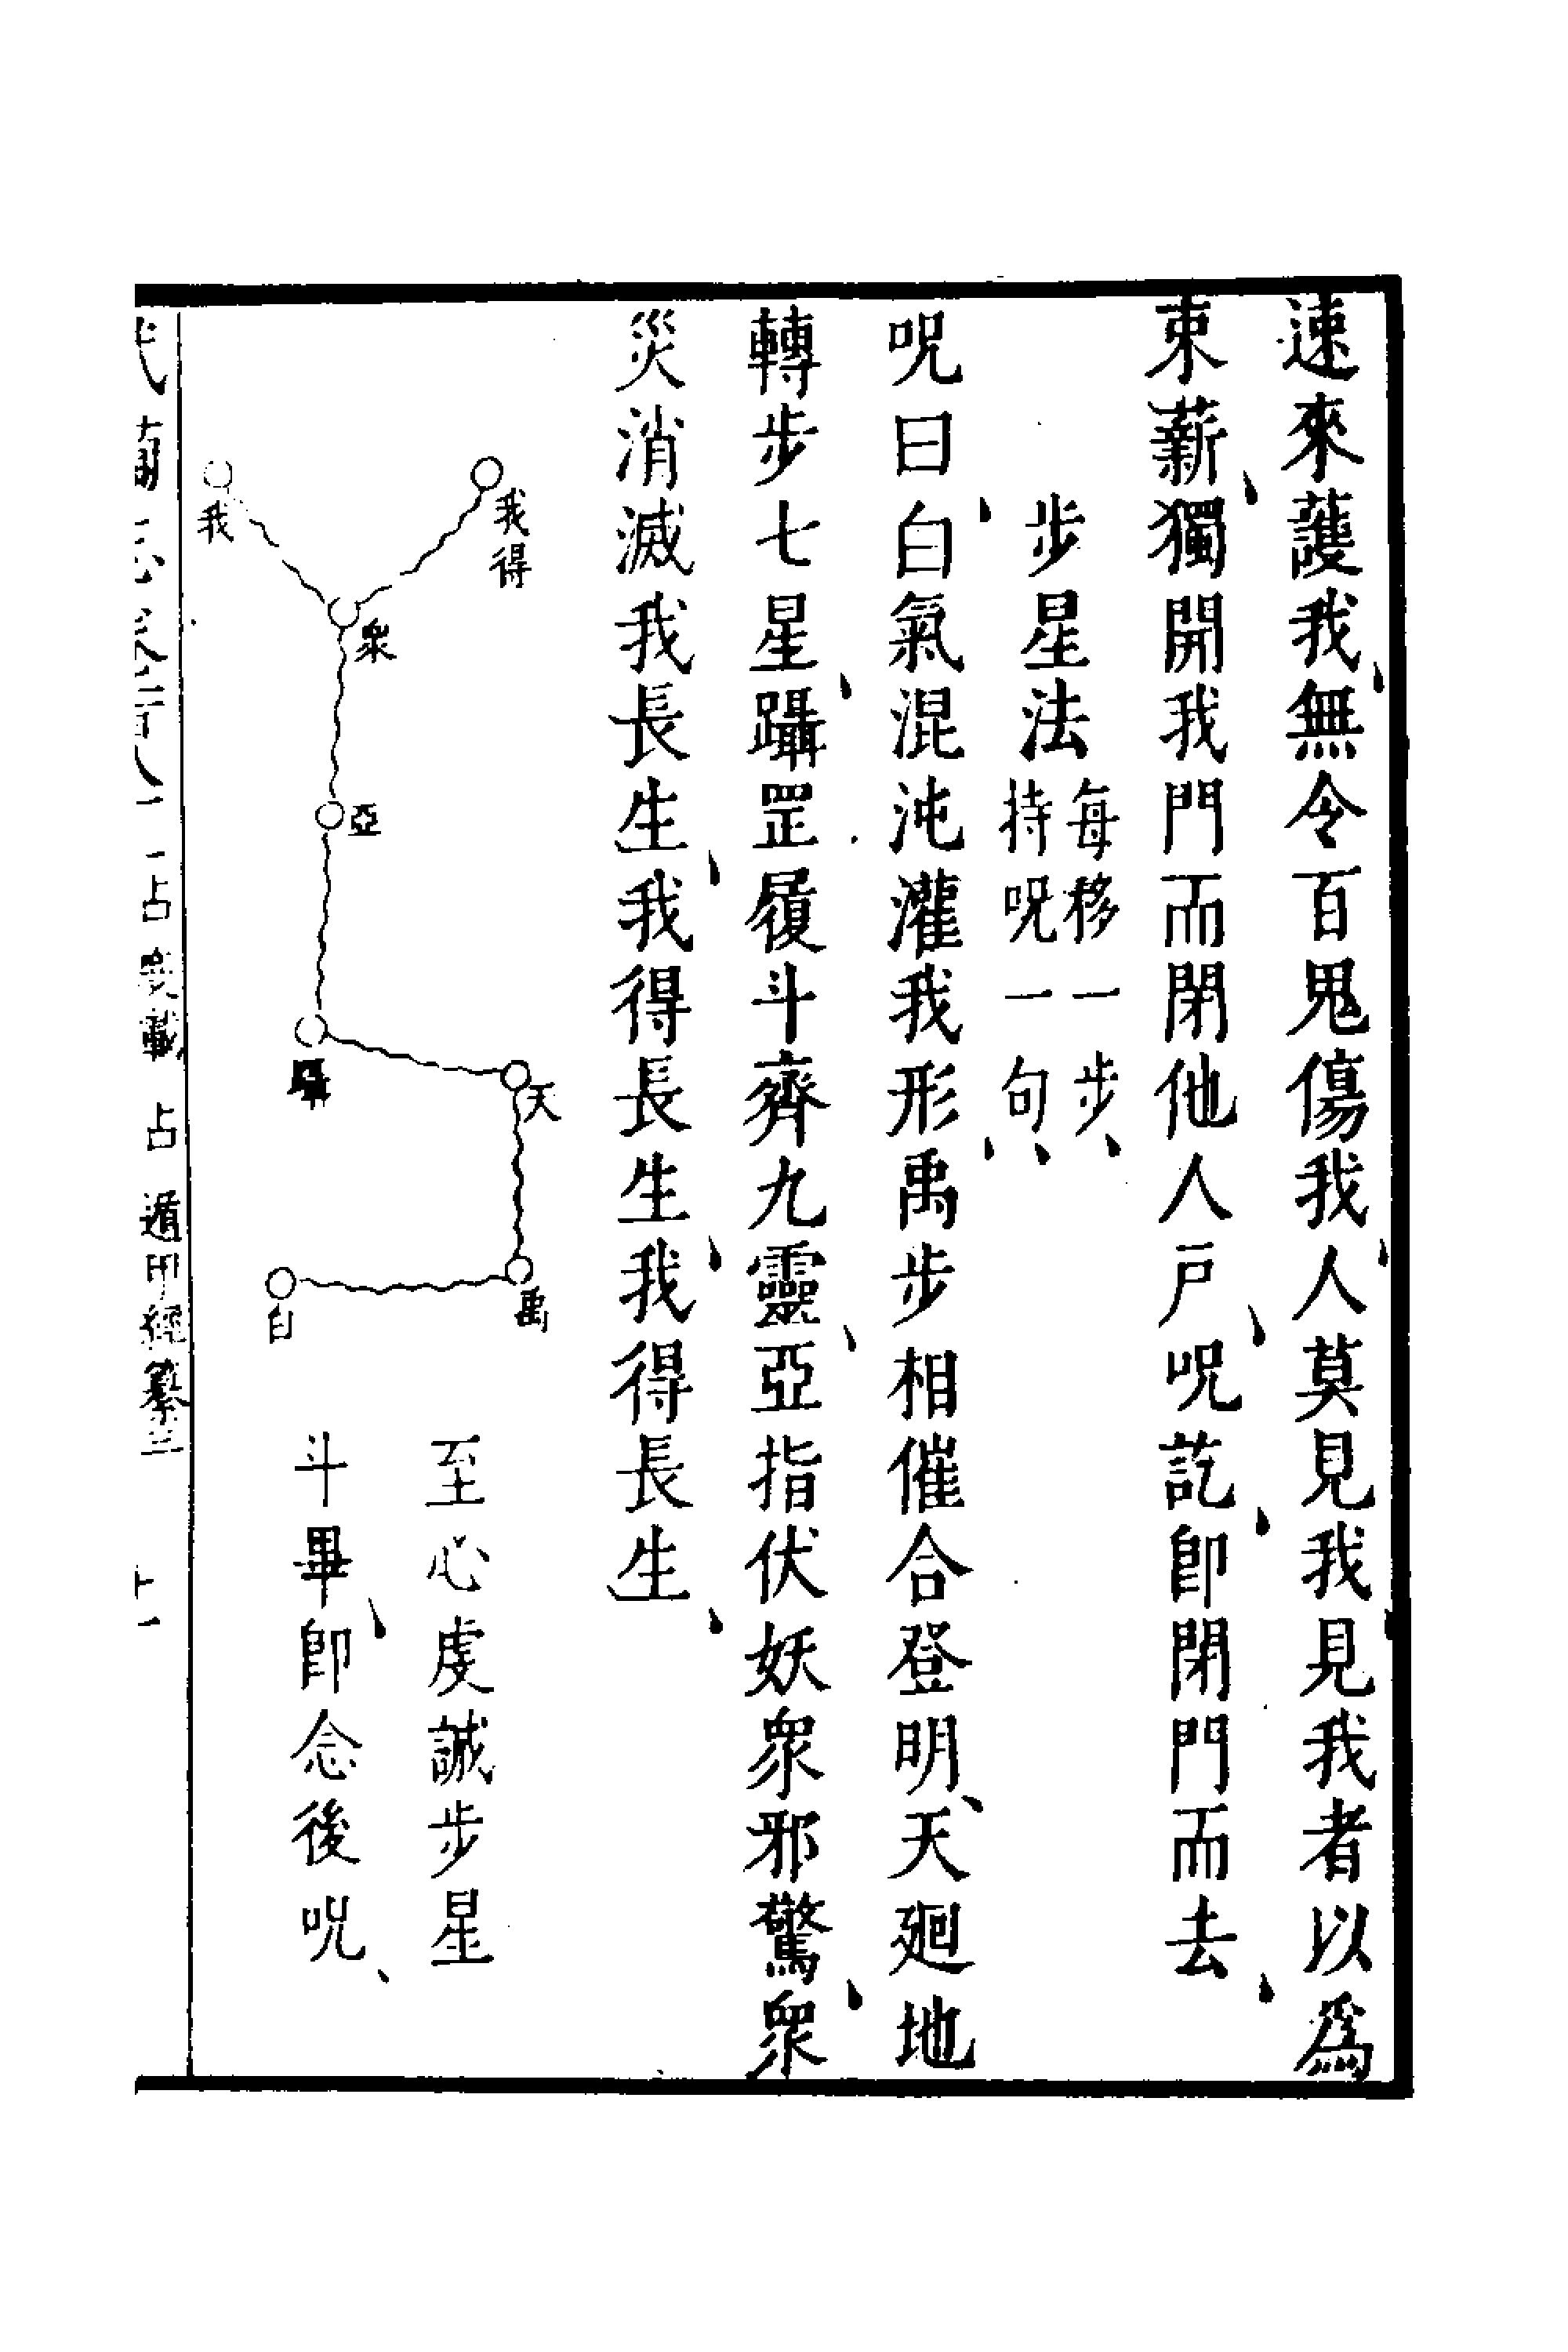 速來護我無令百鬼傷我人莫見我見我者以爲
束薪獨開我門而閉他人戸呪訖卽閉門而去
步星法
每移一步
持呪一句
呪曰白氣混沌灌我形禹步相催合登明天廻地
轉步七星躡罡履斗齊九靈亞指伏妖衆邪驚衆
災消滅我長生我得長生我得長生
我得
我
衆
亞
躡
天
禹
白
至心虔誠步星
斗畢卽念後呪
占
載 占 遁甲經纂三
十一